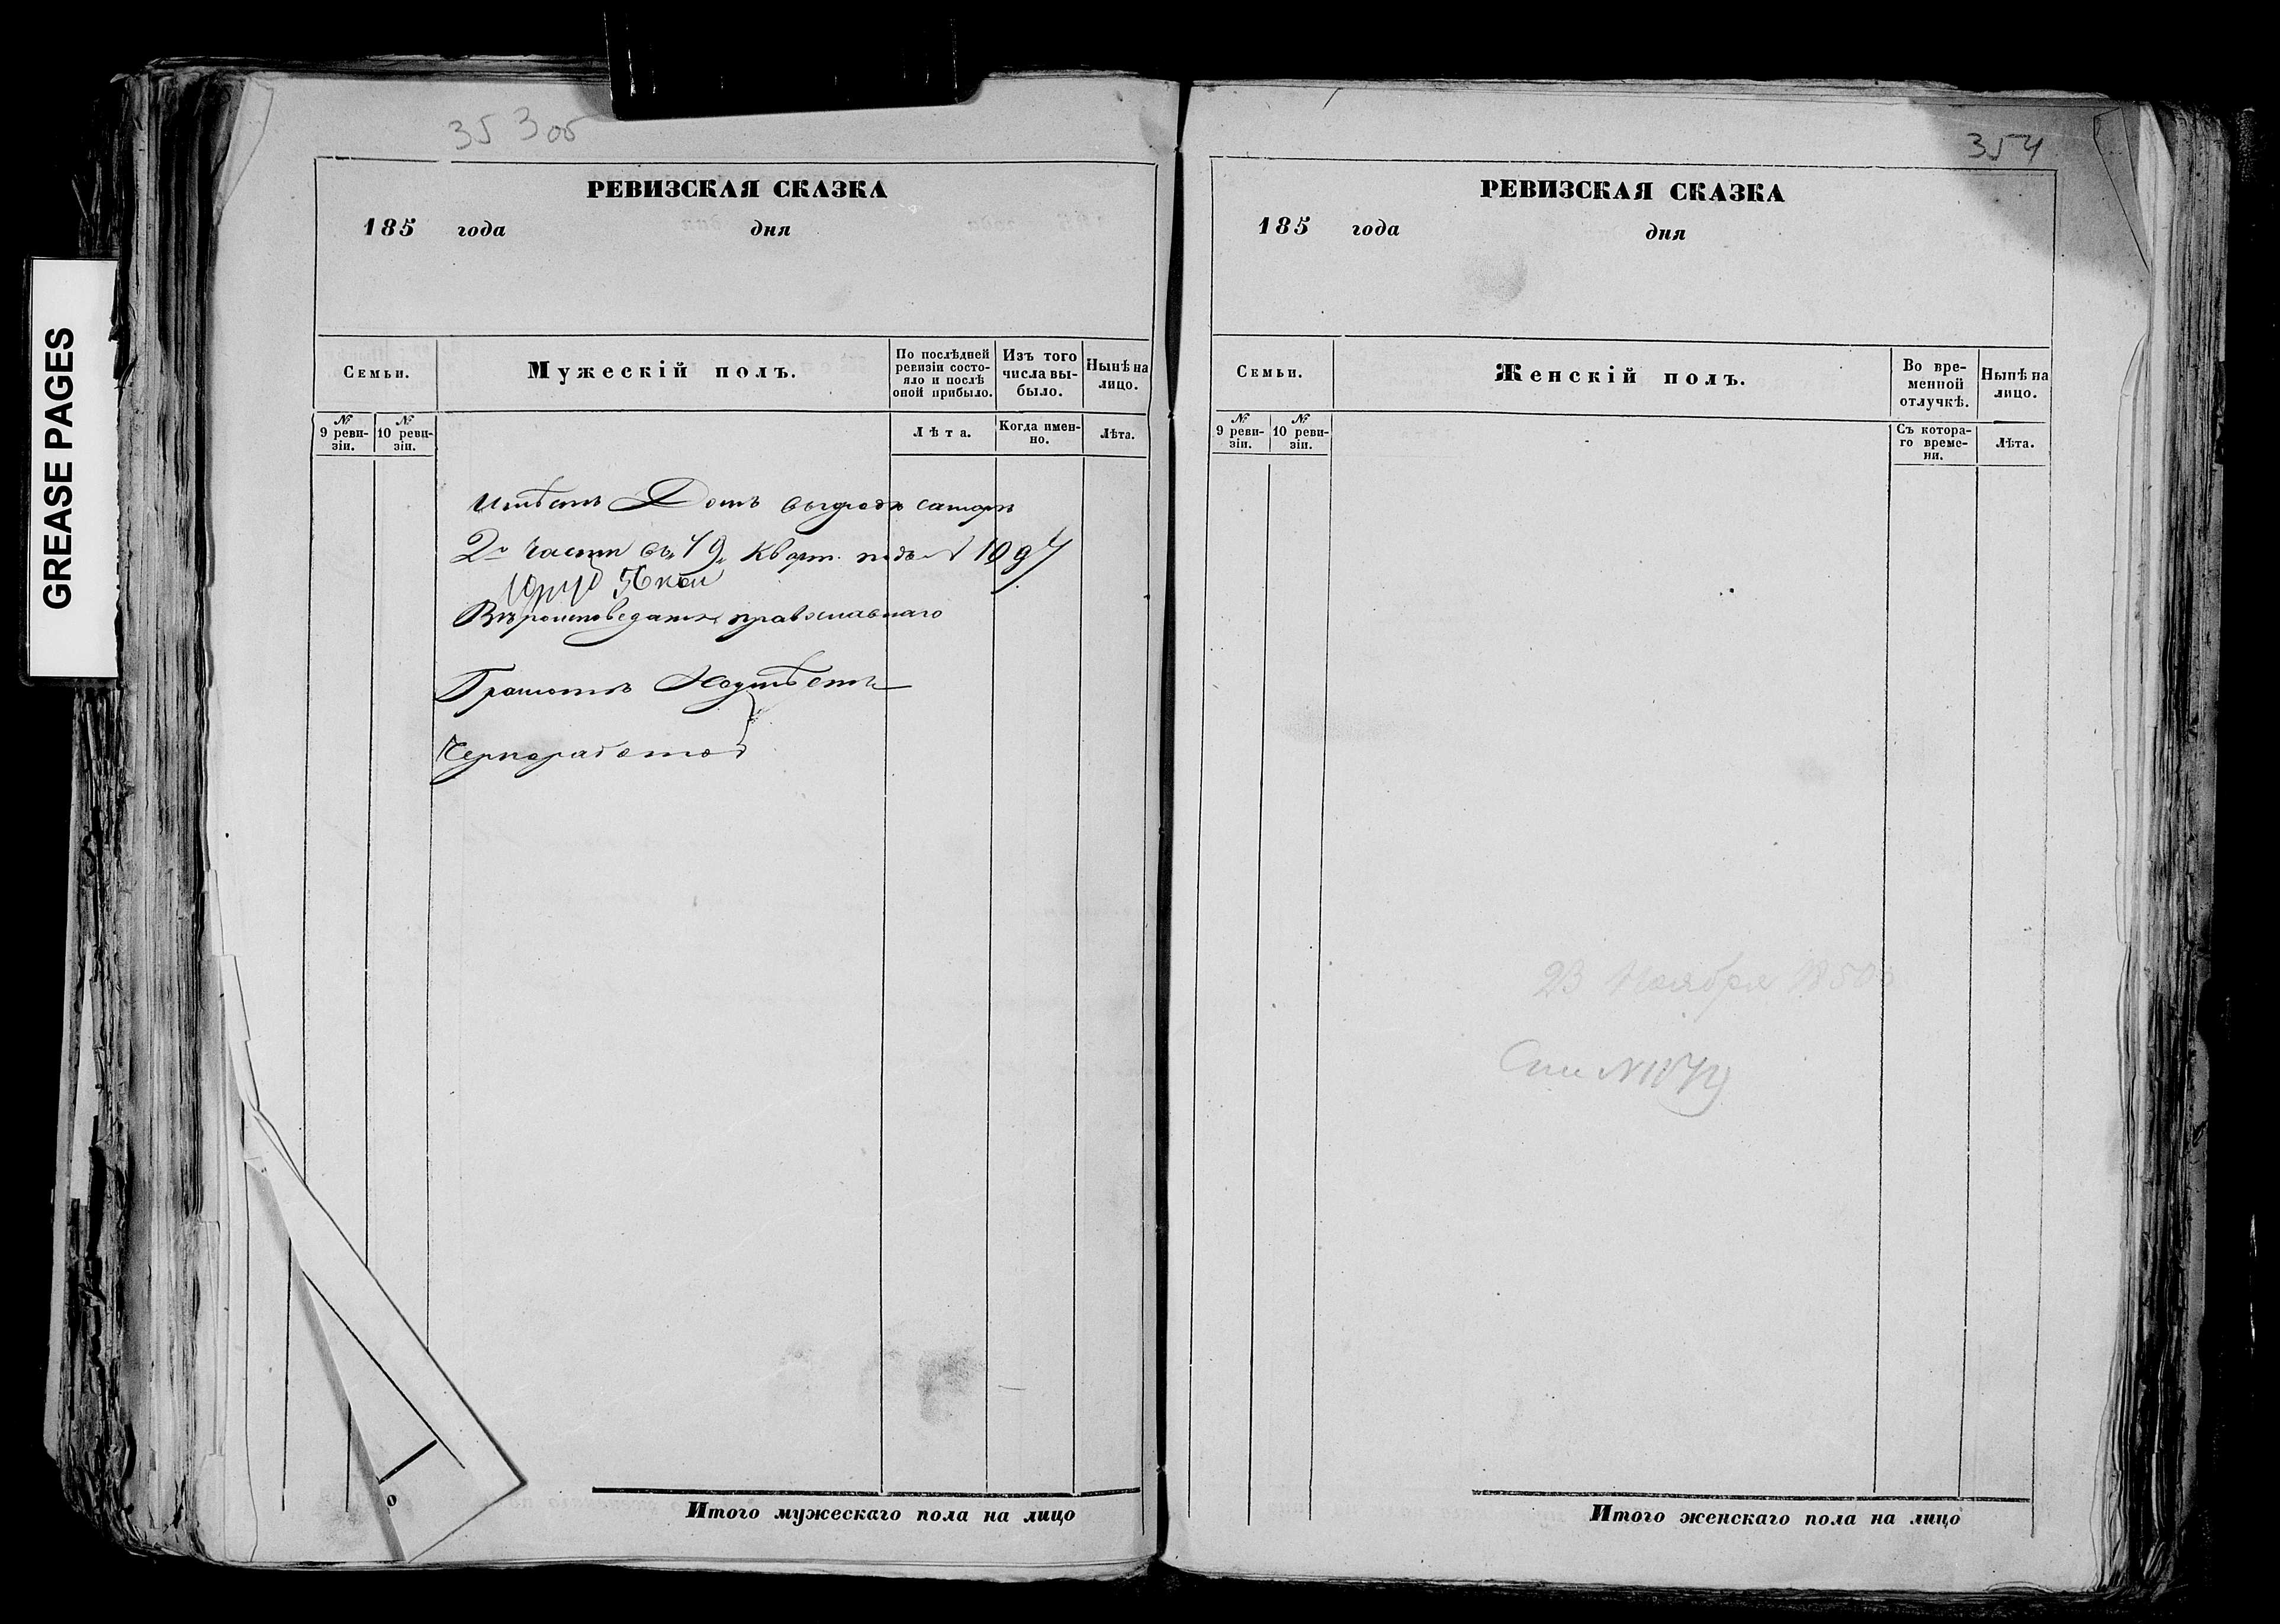 GREASE PAGES
353 об
РЕВИЗСКАЯ СКАЗКА
185 года дня
Семьи.
Мужескій полъ.
По послѣдней ревизіи состо-
яло и послѣ
оной прибыло.
Изъ того
числа вы-
было.
Нынѣ на
лицо.
№
9 реви-
зіи.
№
10 реви-
зіи.
Лѣта.
Когда имен-
но.
Лѣта.
Имѣетъ Домъ
2й части въ 49 кварт. подъ № 1097
56 коп
Вѣроисповеданія православнаго
Грамотѣ Неумѣетъ
Чернорабочей
о
Итого мужескаго пола на лицо
354
РЕВИЗСКАЯ СКАЗКА
185 года дня
Семьи.
Женскій полъ.
Во вре-
менной
отлучкѣ.
Нынѣ на
лицо.
№
9 реви-
зіи.
№
10 реви-
зіи.
Съ котора-
го време-
ни.
Лѣта.
23 Ноября 1850
Итого женскаго пола на лицо